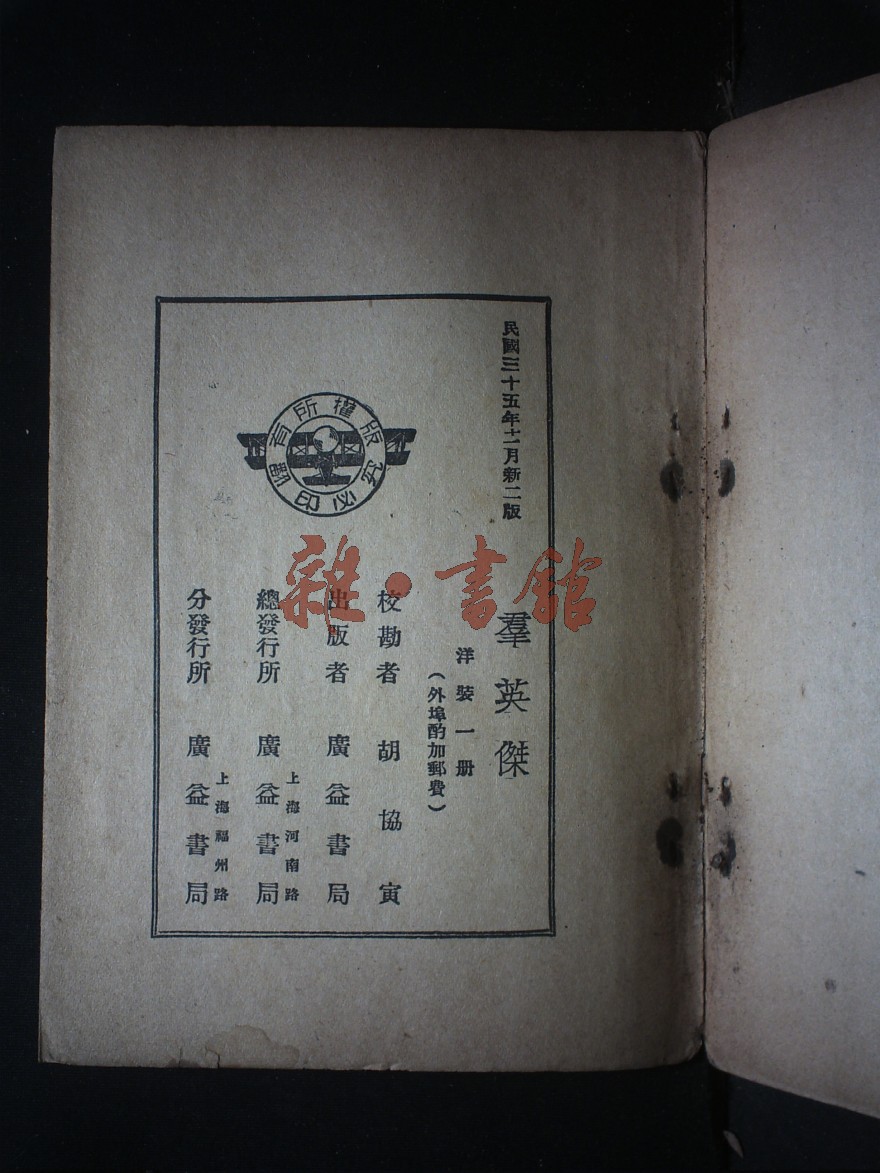 民國三十五年十二月新二版
羣英傑
洋裝一册
(外埠酌加郵費)
校勘者 胡協寅
出版者 廣益書局
上海河南路
總發行所 廣益書局
上海福州路
分發行所 廣益書局
版權所有
翻印必究
雜·書館